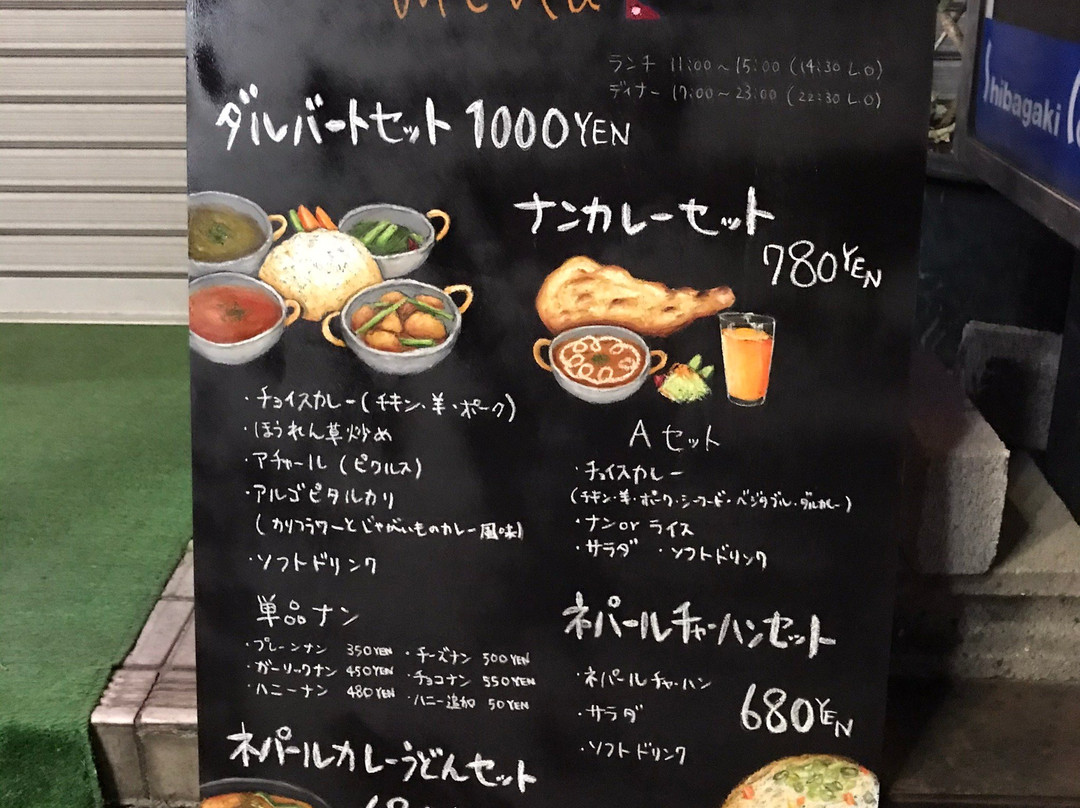 menu
ランチ 11:00~15:00 (14:30 L.O)
ディナー 17:00~23:00 (22:30 L.O)
ダルバートセット 1000YEN
ナンカレーセット
780YEN
・チョイスカレー(チキン、羊・ポーク)
・ほうれん草炒め
・アチャール (ピクルス)
・アルゴピタルカリ
(カリフラワーとじゃがいものカレー風味)
・ソフトドリンク
Aセット
・チョイスカレー
(チキン・羊・ポーク・シーフード・ベジタブル・ダルカレー)
・ナン or ライス
・サラダ ・ソフトドリンク
単品ナン
・プレーンナン 350YEN
・ガーリックナン 450YEN
・ハニーナン 480YEN
・チーズナン 500YEN
・チョコナン 550YEN
・ハニー追加 50YEN
ネパールチャーハンセット
・ネパールチャーハン
・サラダ
・ソフトドリンク
680YEN
ネパールカレーうどんセット
Shibagaki